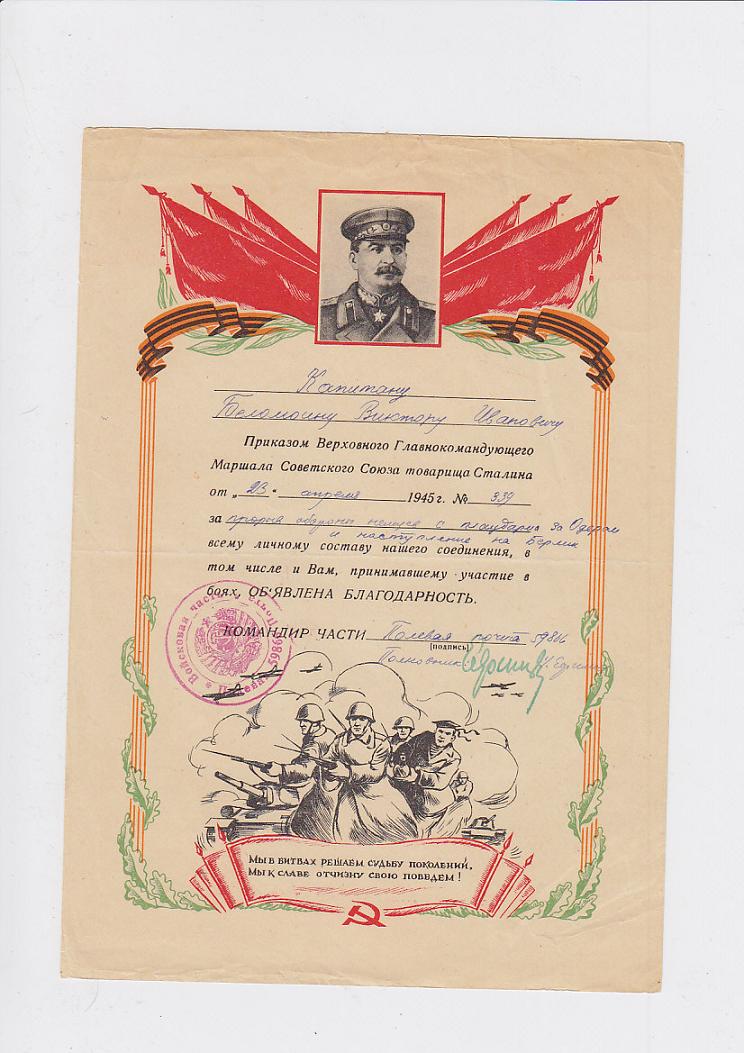 Капитану
Беломоину Виктору Ивановичу
Приказом Верховного Главнокомандующего
Маршала Советского Союза товарища Сталина
от „23“ апреля 1945 г. № 339
за прорыв обороны немцев с плацдарма за Одером
и наступление на Берлин
всему личному составу нашего соединения, в
том числе и Вам, принимавшему участие в
боях, ОБ'ЯВЛЕНА БЛАГОДАРНОСТЬ.
КОМАНДИР ЧАСТИ Полевая почта 59816
(подпись)
Полковник
Войсковая часть Полевая
МЫ В БИТВАХ РЕШАЕМ СУДЬБУ ПОКОЛЕНИЙ,
МЫ К СЛАВЕ ОТЧИЗНУ СВОЮ ПОВЕДЕМ!